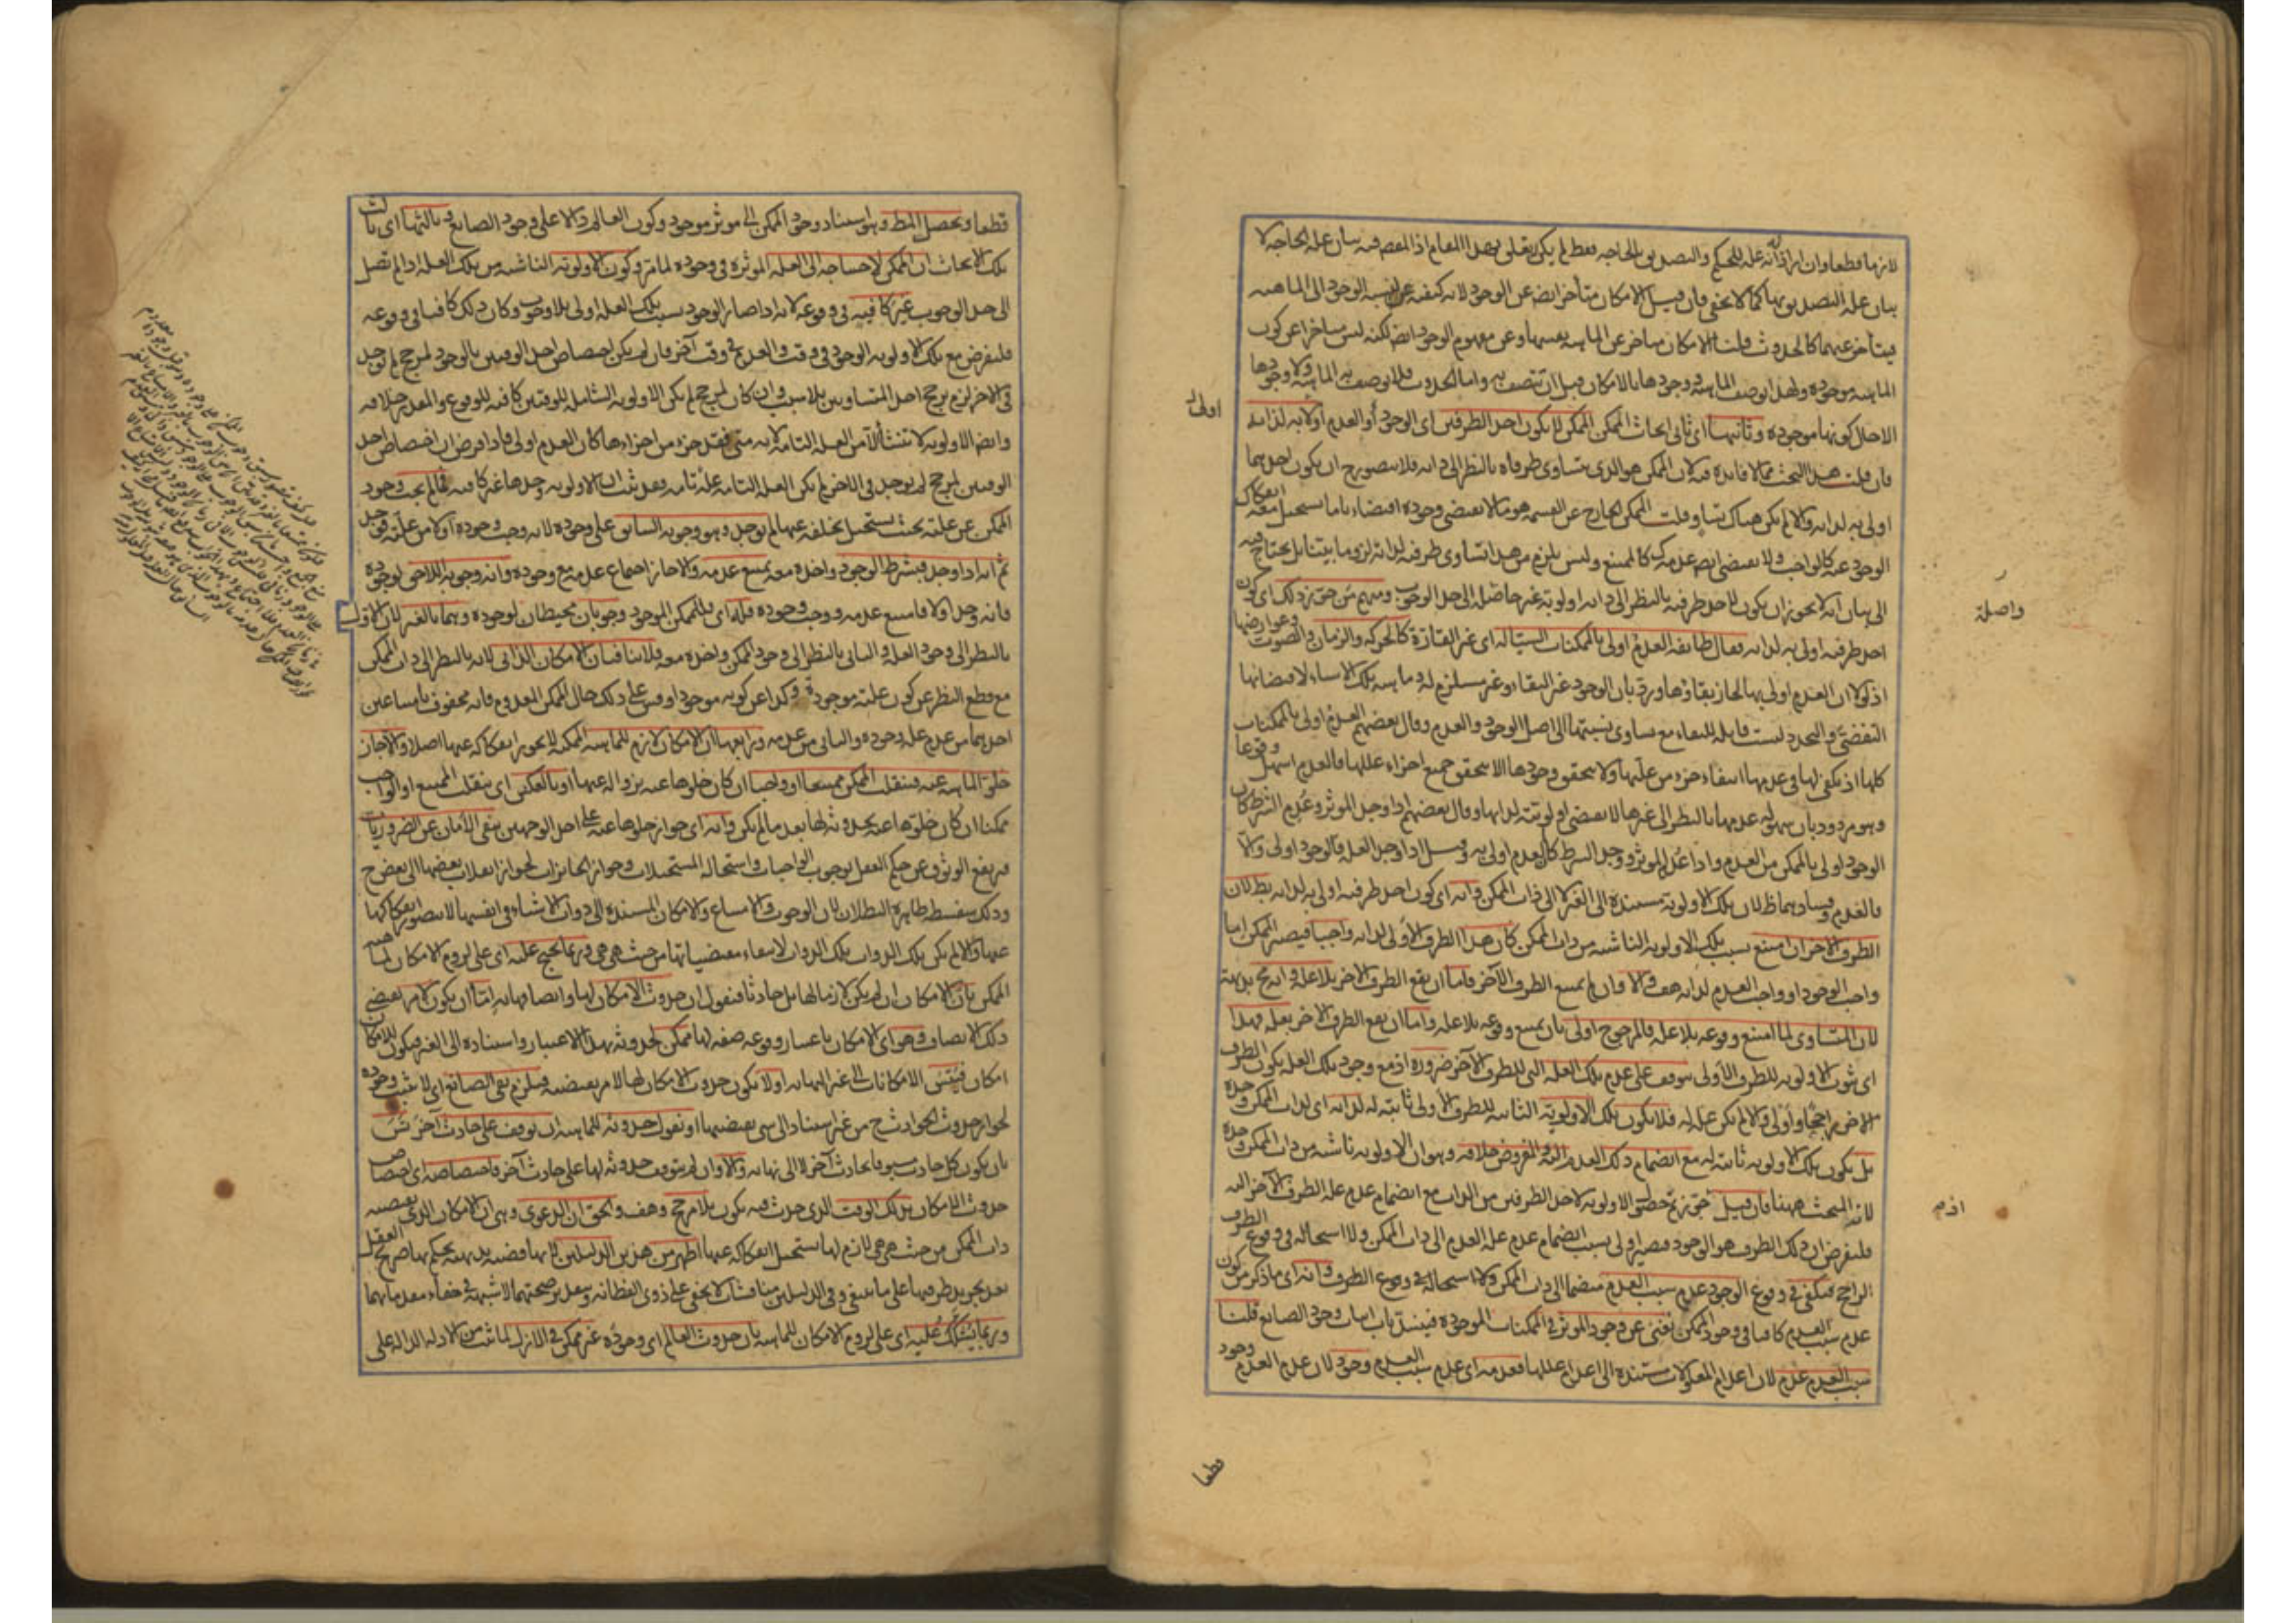 لازما قطعا وان اراد انه علة للحكم والتصديق بالحاجة فقط لم يكن له تعلق بهذا المقام اذ المقصود فيه بيان علة الحاجة لا
بيان علة التصديق بها كما لا يخفى فان قيل الامكان متأخر ايضا عن الوجود لانه كيفية عن نسبة الوجود الى الماهية
فيتأخر عنهما كالحدوث قلنا الامكان متأخر عن الماهية نفسها وعن مفهوم الوجود ايضا لكنه ليس متأخرا عن كون
الماهية موجودة ولهذا توصف الماهية ووجودها بالامكان قبل ان تتصف به واما الحدوث فلا توصف به الماهية ولا وجودها
الا حال كونها موجودة وثانيها اى ثانى ابحاث الممكن الممكن لا يكون احد الطرفين اى الوجود او العدم اولى به لذاته
فان قلت هذا البحث مما لا فائدة فيه لان الممكن هو الذى يتساوى طرفاه بالنظر الى ذاته فلا يتصور ح ان يكون احدهما
اولى به لذاته والا لم يكن هناك تساو قلت الممكن الخارج عن القسمة هو ما لا يقتضى وجوده اقتضاء تاما يستحيل معه انفكاك
الوجود عنه كالواجب ولا يقتضى ايضا عدمه كالممتنع وليس يلزم من هذا تساوى طرفيه لذاته لزوما بينا بل يحتاج فيه
الى بيان انه لا يجوز ان يكون لاحد طرفيه بالنظر الى ذاته اولوية غير حاصلة الى حد الوجوب ومنهم من جوز ذلك اى كون
احد طرفيه اولى به لذاته فقال طائفة العدم اولى بالممكنات السيالة اى غير القارة كالحركة والزمان والصوت وعوارضها
اذ لولا ان العدم اولى بها لجاز بقاؤها ورد بان الوجود غير البقاء وغير مستلزم له وماهية تلك الاشياء لاقتضائها
التقضى والتجدد ليست قابلة للبقاء مع تساوى نسبتها الى اصل الوجود والعدم وقال بعضهم العدم اولى بالممكنات
كلها اذ يكفى لها فى عدمها انتفاء جزء من علتها ولا يتحقق وجودها الا بتحقق جميع اجزاء عللها فالعدم اسهل وقوعا
وهو مردود بان سهولة عدمها بالنظر الى غيرها لا يقتضى اولويته لذاتها وقال بعضهم اذا وجد الموثر وعدم الشرط كان
الوجود اولى بالممكن من العدم واذا عدم الموثر ووجد الشرط كان العدم اولى به وقيل اذا وجد العلة فالوجود اولى والا
فالعدم وفسادهما ظ لان تلك الاولوية مستندة الى الغير لا الى ذات الممكن وانه اى كون احد طرفيه اولى به لذاته بط لان
الطرف الاخر ان امتنع بسبب تلك الاولوية الناشئة من ذات الممكن كان هذا الطرف الاولى لذاته واجبا فيصير الممكن اما
واجب الوجود او واجب العدم لذاته هف والا وان لم يمتنع الطرف الاخر فاما ان يقع الطرف الاخر بلا علة وانه مح بديهة
لان المتساوى لما امتنع وقوعه بلا علة فالمرجوح اولى بان يمتنع وقوعه بلا علة واما ان يقع الطرف الاخر بعلة فهذا
اى ثبوت الاولوية للطرف الاولى يتوقف على عدم تلك العلة التى للطرف الآخر ضرورة اذ مع وجود تلك العلة يكون الطرف
الاخر راجحا واولى والا لم تكن علة له فلا يكون تلك الاولوية الثابتة للطرف الاولى ثابتة له لذاته اى لذات الممكن وحده
بل يكون تلك الاولوية ثابتة له مع انضمام ذلك العدم اليه والمفروض خلافه وهو ان الاولوية ناشئة من ذات الممكن وحده
لانه المبحث ههنا فان قيل حق نرجح حصول الاولوية لاحد الطرفين من الذات مع انضمام عدم علة الطرف الآخر اليه
فلنفرض ان ذلك الطرف هو الوجود فيصير اولى بسبب انضمام عدم علة العدم الى ذات الممكن ولا استحالة فى وقوع الطرف
الراجح فيكفى فى وقوع الوجود عدم سبب العدم منضما الى ذات الممكن ولا استحالة فى وقوع الطرف وانه اى ما ذكر من كون
عدم سبب العدم كافيا فى وجود الممكن يغنى عن وجود الموثر فى الممكنات الموجودة فينسد باب اثبات وجود الصانع قلنا
سبب العدم عدم لان اعدام المعلولات مستندة الى اعدام عللها فعدمه اى عدم سبب العدم وجود لان عدم العدم وجود
اولى
واصلة
قطعا
قطعا ويحصل المط وهو استناد وجود الممكن الى موثر موجود وكون العالم دالا على وجود الصانع وثالثها اى ثالث
تلك الابحاث ان الممكن لاحتياجه الى العلة الموثرة فى وجوده لما مر وكون الاولوية الناشئة من تلك العلة اذا لم تصل
الى حد الوجوب غير كافية فى وقوعه لانه اذا صار الوجود بسبب تلك العلة اولى بلا وجوب وكان ذلك كافيا فى وقوعه
فلنفرض مع تلك الاولوية الوجود فى وقت والعدم فى وقت آخر فان لم يكن اختصاص احد الوقتين بالوجود لمرجح لم يوجد
فى الآخر لزم ترجح احد المتساويين بلا سبب وان كان لمرجح لم يكن الاولوية الشاملة للوقتين كافية للوقوع والمقدر خلافه
وايضا الاولوية لا تنشأ الا من العلة التامة لانه متى فقد جزء من اجزاءها كان العدم اولى فاذا فرض ان اختصاص احد
الوقتين لمرجح لم يوجد فى الآخر لم يكن العلة التامة علة تامة فقد ثبت ان الاولوية وحدها غير كافية فما لم يجب وجود
الممكن عن علته بحيث يستحيل تخلفه عنها لم يوجد وهو وجوبه السابق على وجوده لانه وجب وجوده اولا من علته فوجد
ثم انه اذا وجد فبشرط الوجود واخذه معه يمتنع عدمه والا جاز اجتماع عدمه مع وجوده وانه وجوبه اللاحق لوجوده
فانه وجد اولا فامتنع عدمه ووجب وجوده فله اى فللممكن الموجود وجوبان محيطان لوجوده وهما بالغير لان الاول
بالنظر الى وجود العلة والثانى بالنظر الى وجود الممكن واخذه معه فلا ينافيان الامكان الذاتى لانه بالنظر الى ذات الممكن
مع قطع النظر عن كون علته موجودة وكذا عن كونه موجودا وقس على ذلك حال الممكن المعدوم فانه محفوف بامتناعين
احدهما من عدم علة وجوده والثانى من عدمه ورابعها ان الامكان لازم للماهية الممكنة لا يجوز انفكاكه عنها اصلا والا جاز
خلو الماهية عنه فينقلب الممكن ممتنعا او واجبا ان كان خلوها عنه بزواله عنها او بالعكس اى ينقلب الممتنع او الواجب
ممكنا ان كان خلوها عنه بحدوثه لها بعد ما لم يكن وانه اى جواز خلوها عنه على احد الوجهين ينفى الامان عن الضروريات
فيرتفع الوثوق عن حكم العقل بوجوب الواجبات واستحالة المستحيلات وجواز الجائزات لجواز انقلاب بعضها الى بعض ح
وذلك سفسطة ظاهرة البطلان لان الوجوب والامتناع والامكان المستندة الى ذوات الاشياء فى انفسها لا يتصور انفكاكها
عنها والا لم تكن تلك الذوات تلك الذوات لانتفاء مقتضياتها من حيث هى هى وربما يحتج عليه اى على لزوم الامكان لماهية
الممكن بان الامكان ان لم يكن لازما لها بل حادثا فنقول ان حدوث الامكان لها واتصافها به اما ان يكون لامر يقتضى
ذلك الاتصاف وهو اى الامكان باعتبار وقوعه صفة لها ممكن لحدوثه بهذا الاعتبار واستناده الى الغير فيكون للامكان
امكان فيتس الامكانات الى غير النهاية او لا يكون حدوث الامكان لها لامر يقتضيه فيلزم نفى الصانع اى لا يثبت وجوده
لجواز حدوث الحوادث ح من غير استناد الى شئ يقتضيها او نقول حدوثه للماهية ان توقف على حادث آخر تس
بان يكون كل حادث مسبوقا بحادث آخر لا الى نهاية والا وان لم يتوقف حدوثه لها على حادث آخر فاختصاصه اى اختصاص
حدوث الامكان بذلك الوقت الذى حدث فيه يكون بلا مرجح وهف والحق ان الدعوى وهى ان الامكان الذى يقتضيه
ذات الممكن من حيث هى هى لازم لها يستحيل انفكاكه عنها اظهر من هذين الدليلين لانها قضية بديهية يحكم بها صريح العقل
بعد تجريد طرفيها على ما ينبغى وفى الدليلين مناقشات لا تخفى على ذوى الفطانة وبتقدير صحتهما لا شبهة فى خفاء مقدماتهما
وربما يشكك عليه اى على لزوم الامكان للماهية بان حدوث العالم اى وجوده غير ممكن فى الازل لما ثبت من الادلة الدالة على